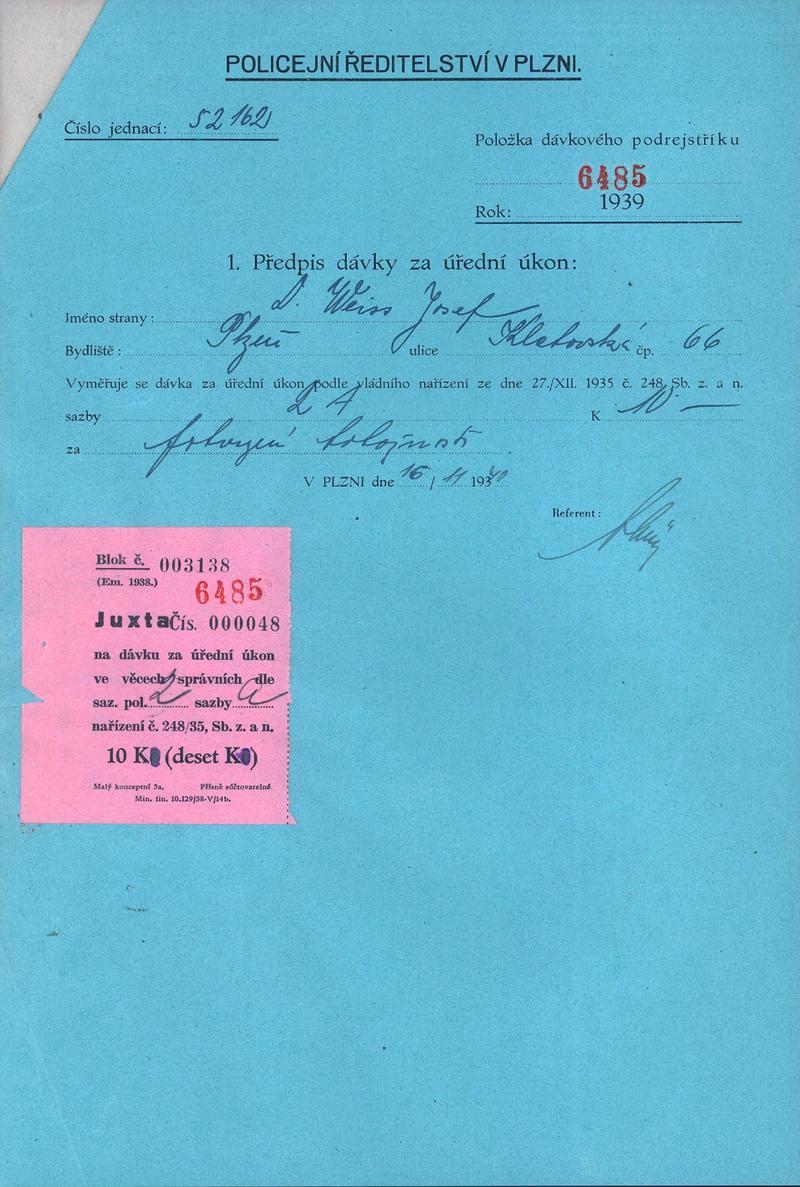 POLICEJNÍ ŘEDITELSTVÍ V PLZNI.
Číslo jednací: 52162
Položka dávkového podrejstříku
6485
Rok: 1939
1. Předpis dávky za úřední úkon:
Jméno strany: D. Weiss Josef
Bydliště: Plzeň ulice Klatovská čp. 66
Vyměřuje se dávka za úřední úkon podle vládního nařízení ze dne 27./XII. 1935 č. 248 Sb. z. a n.
sazby 2 A K 10 —
za totožnosti.
V PLZNI dne 16 / 11 1939
Referent:
Blok č. 003138
(Em. 1938.)
6485
Juxta Čís. 000048
na dávku za úřední úkon
ve věcech správních dle
saz. pol. 2 sazby a
nařízení č. 248/35, Sb. z. a n.
10 K (deset K)
Malý konceptní 5a. Přísně súčtovatelné.
Min. fin. 10.129/38-V/14b.